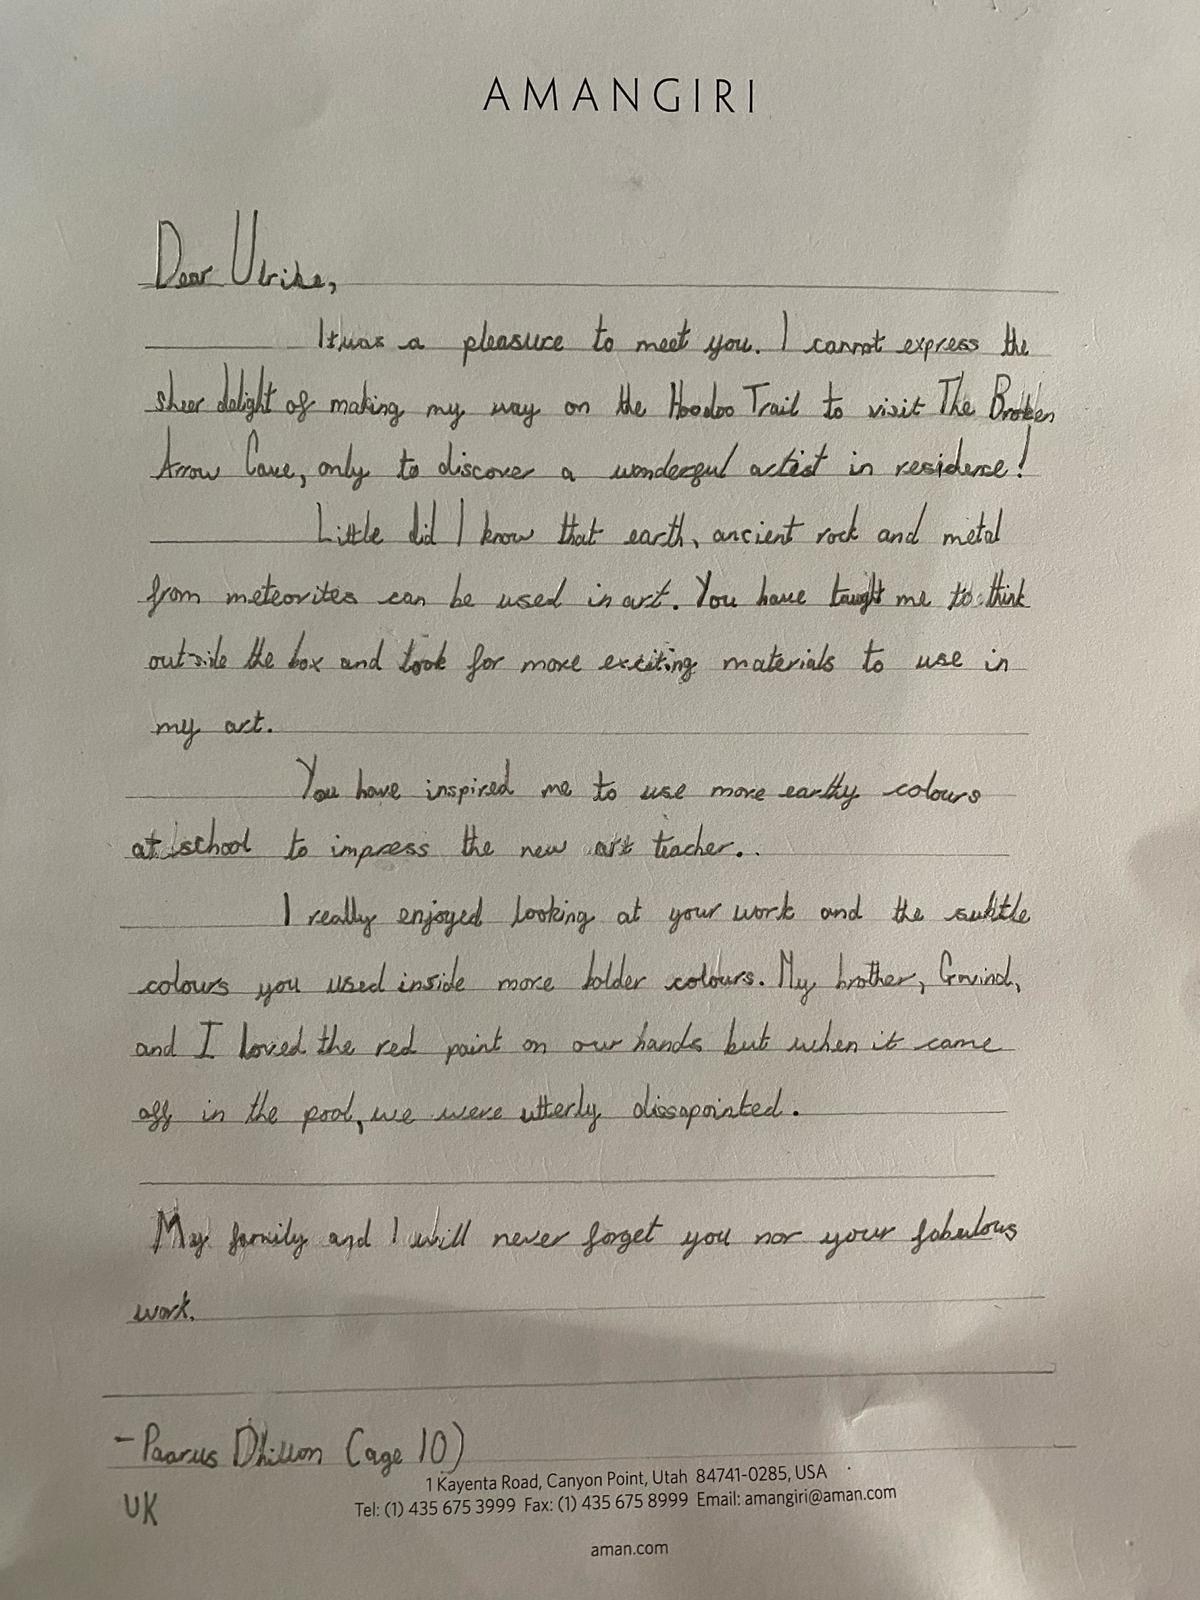 AMANGIRI
Dear Ulrike,
It was a pleasure to meet you. I cannot express the
sheer delight of making my way on the Hoodoo Trail to visit The Broken
Arrow Cave, only to discover a wonderful artist in residence!
Little did I know that earth, ancient rock and metal
from meteorites can be used in art. You have taught me to think
outside the box and look for more exciting materials to use in
my art.
You have inspired me to use more earthy colours
at school to impress the new art teacher..
I really enjoyed looking at your work and the subtle
colours you used inside more bolder colours. My brother, Govind,
and I loved the red paint on our hands but when it came
off in the pool, we were utterly dissapointed.
My family and I will never forget you nor your fabulous
work.
- Paarus Dhillon (age 10)
UK
1 Kayenta Road, Canyon Point, Utah 84741-0285, USA
Tel: (1) 435 675 3999 Fax: (1) 435 675 8999 Email: amangiri@aman.com
aman.com